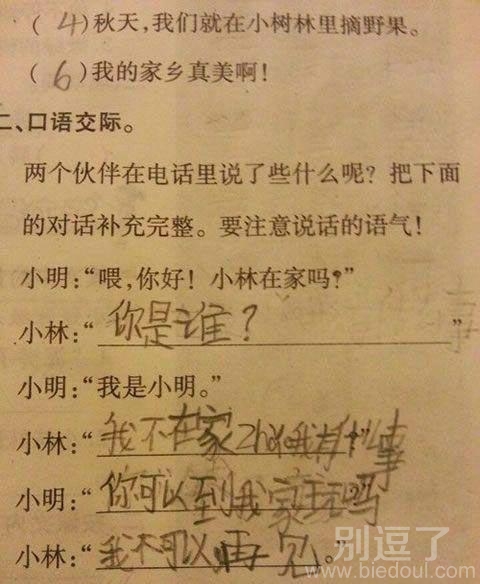 （4）秋天，我们就在小树林里摘野果。
（6）我的家乡真美啊！
二、口语交际。
两个伙伴在电话里说了些什么呢？把下面
的对话补充完整。要注意说话的语气！
小明：“喂，你好！小林在家吗？”
小林：“你是谁？”
小明：“我是小明。”
小林：“我不在家zhǎo我有什么事”
小明：“你可以到我家玩吗
小林：“我不可以再见。”
别逗了
www.biedoul.com